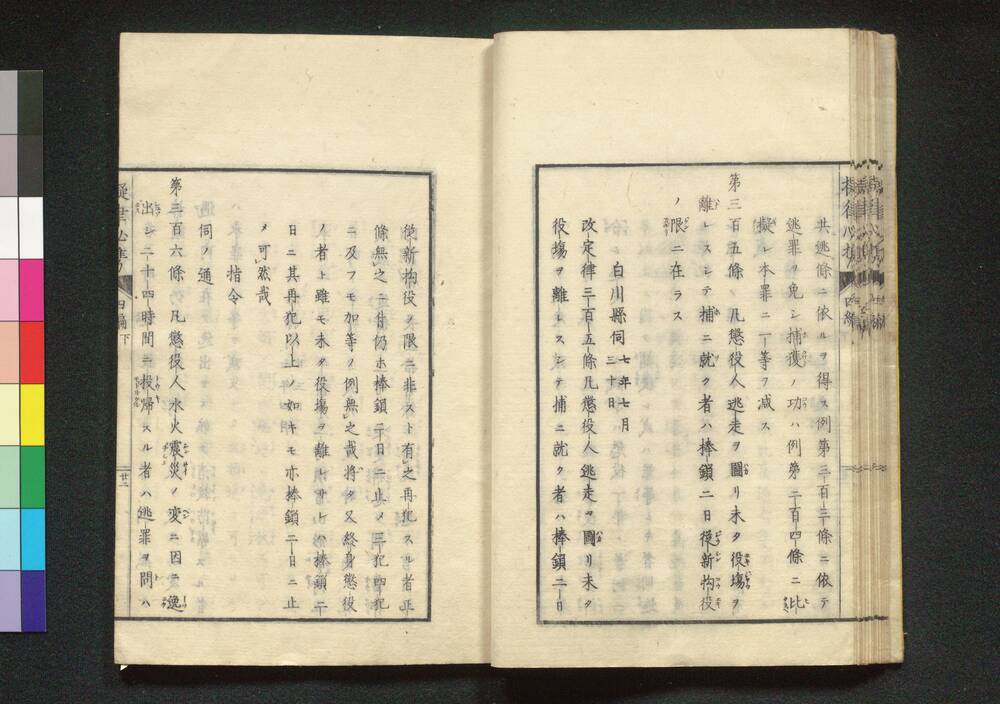 共逃條ニ依ルヲ得ス例第三百三條ニ依テ
逃罪ヲ免シ捕獲ノ功ハ例第二百四條ニ比
擬シ本罪ニ一等ヲ減ス
第三百五條凡懲役人逃走ヲ圖リ未タ役塲ヲ
離レスシテ捕ニ就ク者ハ棒鎖二日從新拘役
ノ限ニ在ラス
白川縣伺 七年七月三十日
改定律三百五條凡懲役人逃走ヲ圖リ未タ
役塲ヲ離レスシテ捕ニ就ク者ハ棒鎖二日
從新拘役ノ限ニ非スト有之再犯スル者
條無之ニ付仍ホ棒鎖二日ニ止メ三犯四犯
ニ及フモ加等ノ例無之哉將タ又終身懲役
人者ト雖モ未タ役塲ヲ離レサレハ棒鎖二
日ニ其再犯以上ノ如キモ亦棒鎖二日ニ止
メ可然哉
指令
伺ノ通
第三百六條凡懲役人水火震災ノ変ニ因テ逸
出シ二十四時間ニ投歸スル者ハ逃罪ヲ問ハ
四編下
廿二